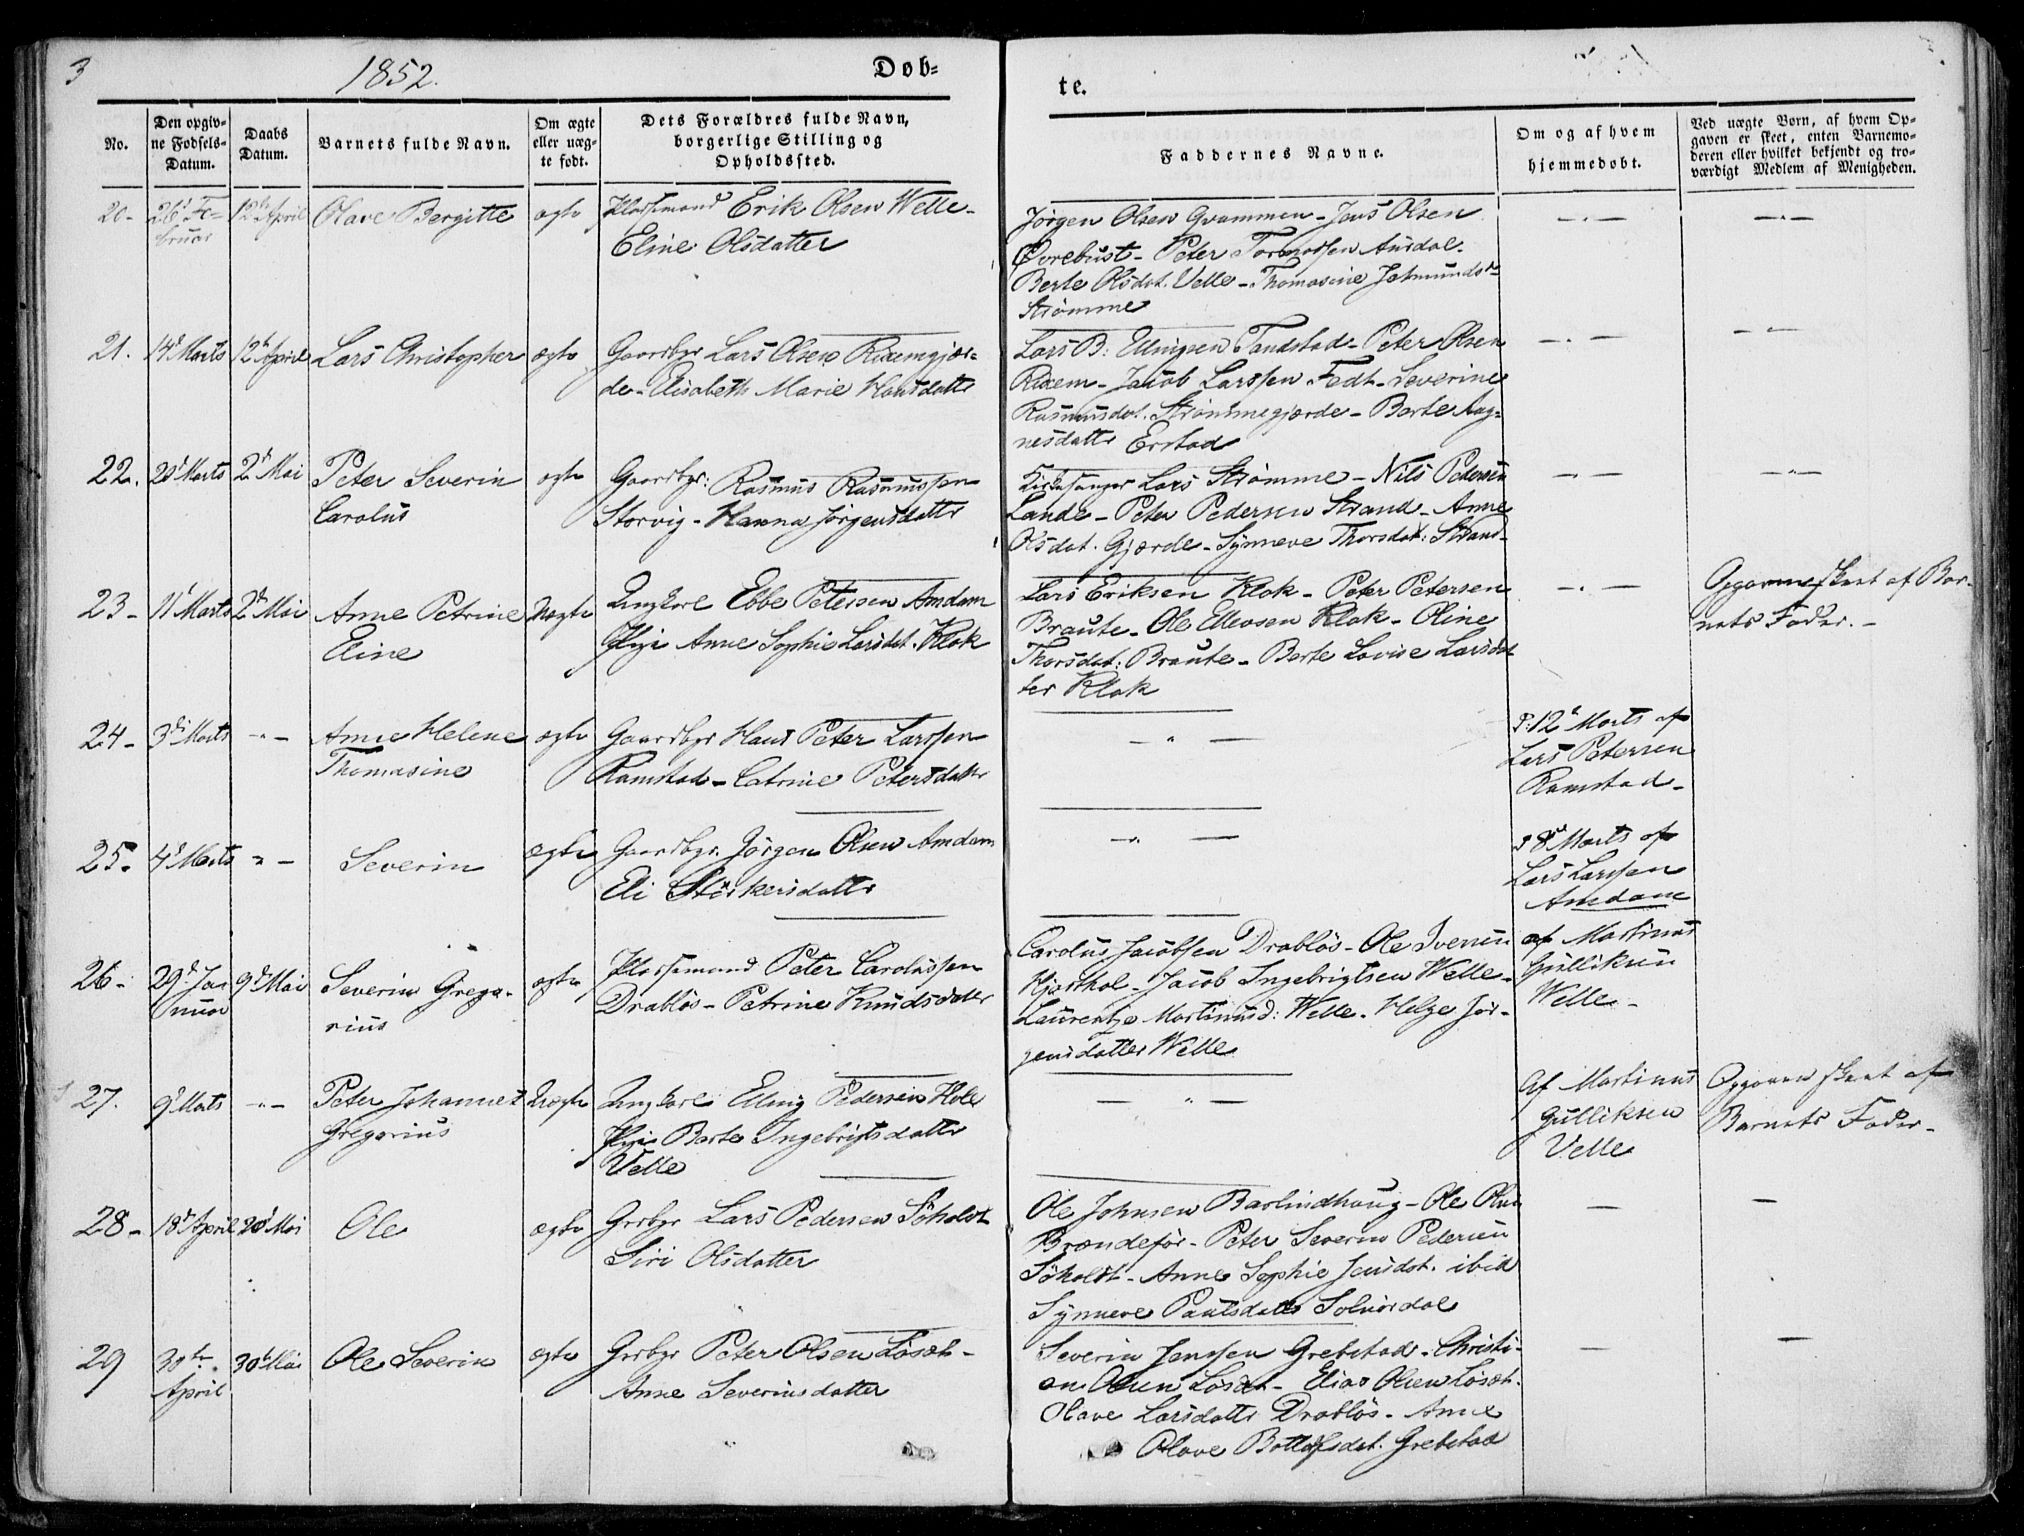 3
1852.
Døb=
te.
No.
Den opgiv=
ne Fødsels=
Datum.
Daabs
Datum.
Barnets fulde Navn.
Om ægte
eller uæg=
te født.
Dets Forældres fulde Navn,
borgerlige Stilling og
Opholdssted.
Faddernes Navne.
Om og af hvem
hjemmedøbt.
Ved uægte Børn, af hvem Op=
gaven er skeet, enten Barnemo=
deren eller hvilket bekjendt og tro=
værdigt Medlem af Menigheden.
20-
26d Fe-
bruar
12te April
Olave Bergitte
ægte
Pladsmand Erik Olsen Welle-
Eline Olsdatter
Jørgen Olsen Qvammen - Jens Olsen
Øvrebust - Peter Aursdal-
Berte Olsdat. Velle - Thomasine Jetmundsd-
Strømme
21.
14d Marts
12te April
Lars Christopher
ægte
Gaardbgr Lars Olsen Rixemgjær-
de - Elisabeth Marie Hansdatter
Lars B: Ellingsen Tandstad - Peter Olsen
Rixem - Jacob Larssen Fedt - Severine
Rasmusdat. Strømmegjærde - Berte Aag-
nesdatter Erstad
22.
20d Marts
2d Mai
Peter Severin
Carolus
ægte
Gaardbgr: Rasmus Rasmussen
Storvig - Hanna Jørgensdatter
Kirkesanger Lars Strømme - Nils Pedersen
Lande - Peter Pedersen Strand - Anne
Olsdat. Gjærde - Synneve Thorsdat: Strand-
23-
11d Marts
2d Mai
Anne Petrine
Eline
Uægte
Ungkarl Ebbe Petersen Amdam
Pige Anne Sophie Larsdat. Klok
Lars Eriksen Klok - Peter Petersen
Braute - Ole Ellevsen Klok - Oline
Thorsdat: Braute - Berte Lovise Larsdat
ter Klok
Opgaven skeet af Bar-
nets Fader. -
24-
3d Marts
-"-
Anne Helene
Thomasine
ægte
Gaardbgr Hans Peter Larssen
Ramstad - Catrine Petersdatter
- " -
d: 12d Marts af
Lars Petersen
Ramstad -
25.
4d Marts
" -
Severin
ægte
Gaardbgr. Jørgen Olsen Amdam
Eli Størkersdatter
- " -
d 8d Marts af
Lars Larssen
Amdam
26-
29d Ja-
nuar
9d Mai
Severin Grego-
rius
ægte
Pladsmand Peter Carolussen
Drabløs - Petrine Knudsdatter
Carolus Jacobsen Drabløs - Ole Iversen
Hjorthol - Jacob Ingebrigtsen Welle -
Laurentze Martinusd: Welle - Helge Jør-
gensdatter Welle
af Martinus
Gulliksen
Welle -
27.
9d Marts
-"-
Peter Johannes
Gregorius
Uægte
Ungkarl Elling Pedersen Hole
Pige Berte Ingebrigtsdatter
Velle
- " -
Af Martinus
Gulliksen
Velle
Opgaven skeet af
Barnets Fader -
28-
18d April
20d Mai
Ole
ægte
Grbgr Lars Pedersen Søholdt
Siri Olsdatter
Ole Johnsen Barlindhaug - Ole Olsen
Brændefør - Peter Severin Pedersen
Søholdt - Anne Sophie Jensdat. ibid
Synneve Paulsdatter Solnørdal
29
30te
April
30d Mai
Ole Severin
ægte
Grbgr Peter Olsen Løseth -
Anne Severinsdatter
Severin Jenssen Grebstad - Christi-
an Olsen Løseth - Elias Olsen Løseth.
Olave Larsdatter Drabløs - Anne
Olave Bottolfsdat. Grebstad